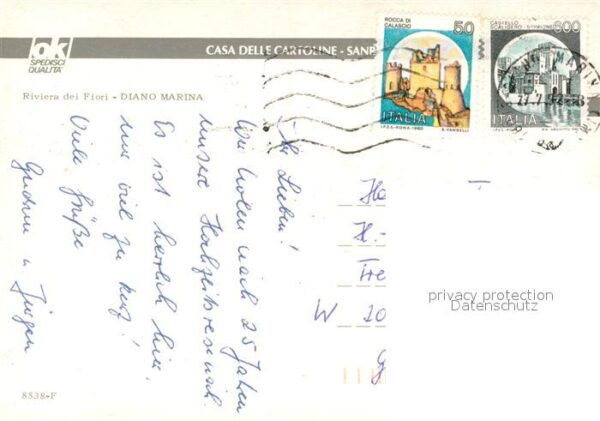 ok
SPEDISCI
QUALITÀ
CASA DELLE CARTOLINE - SANR
Riviera dei Fiori - DIANO MARINA
Ihr Lieben!
Wir holen nach 25 Jahren
unsere Hochzeitsreise nach.
Es ist herrlich hier,
nur viel zu kurz!
Viele Grüße
Gudrun u. Jürgen
8538-F
ROCCA DI
CALASCIO
50
ITALIA
I.P.Z.S.-ROMA-1980
E. VANGELLI
CASTELLO
SCALIGERO - SIRMIONE
600
ITALIA
H.-
W
privacy protection
Datenschutz